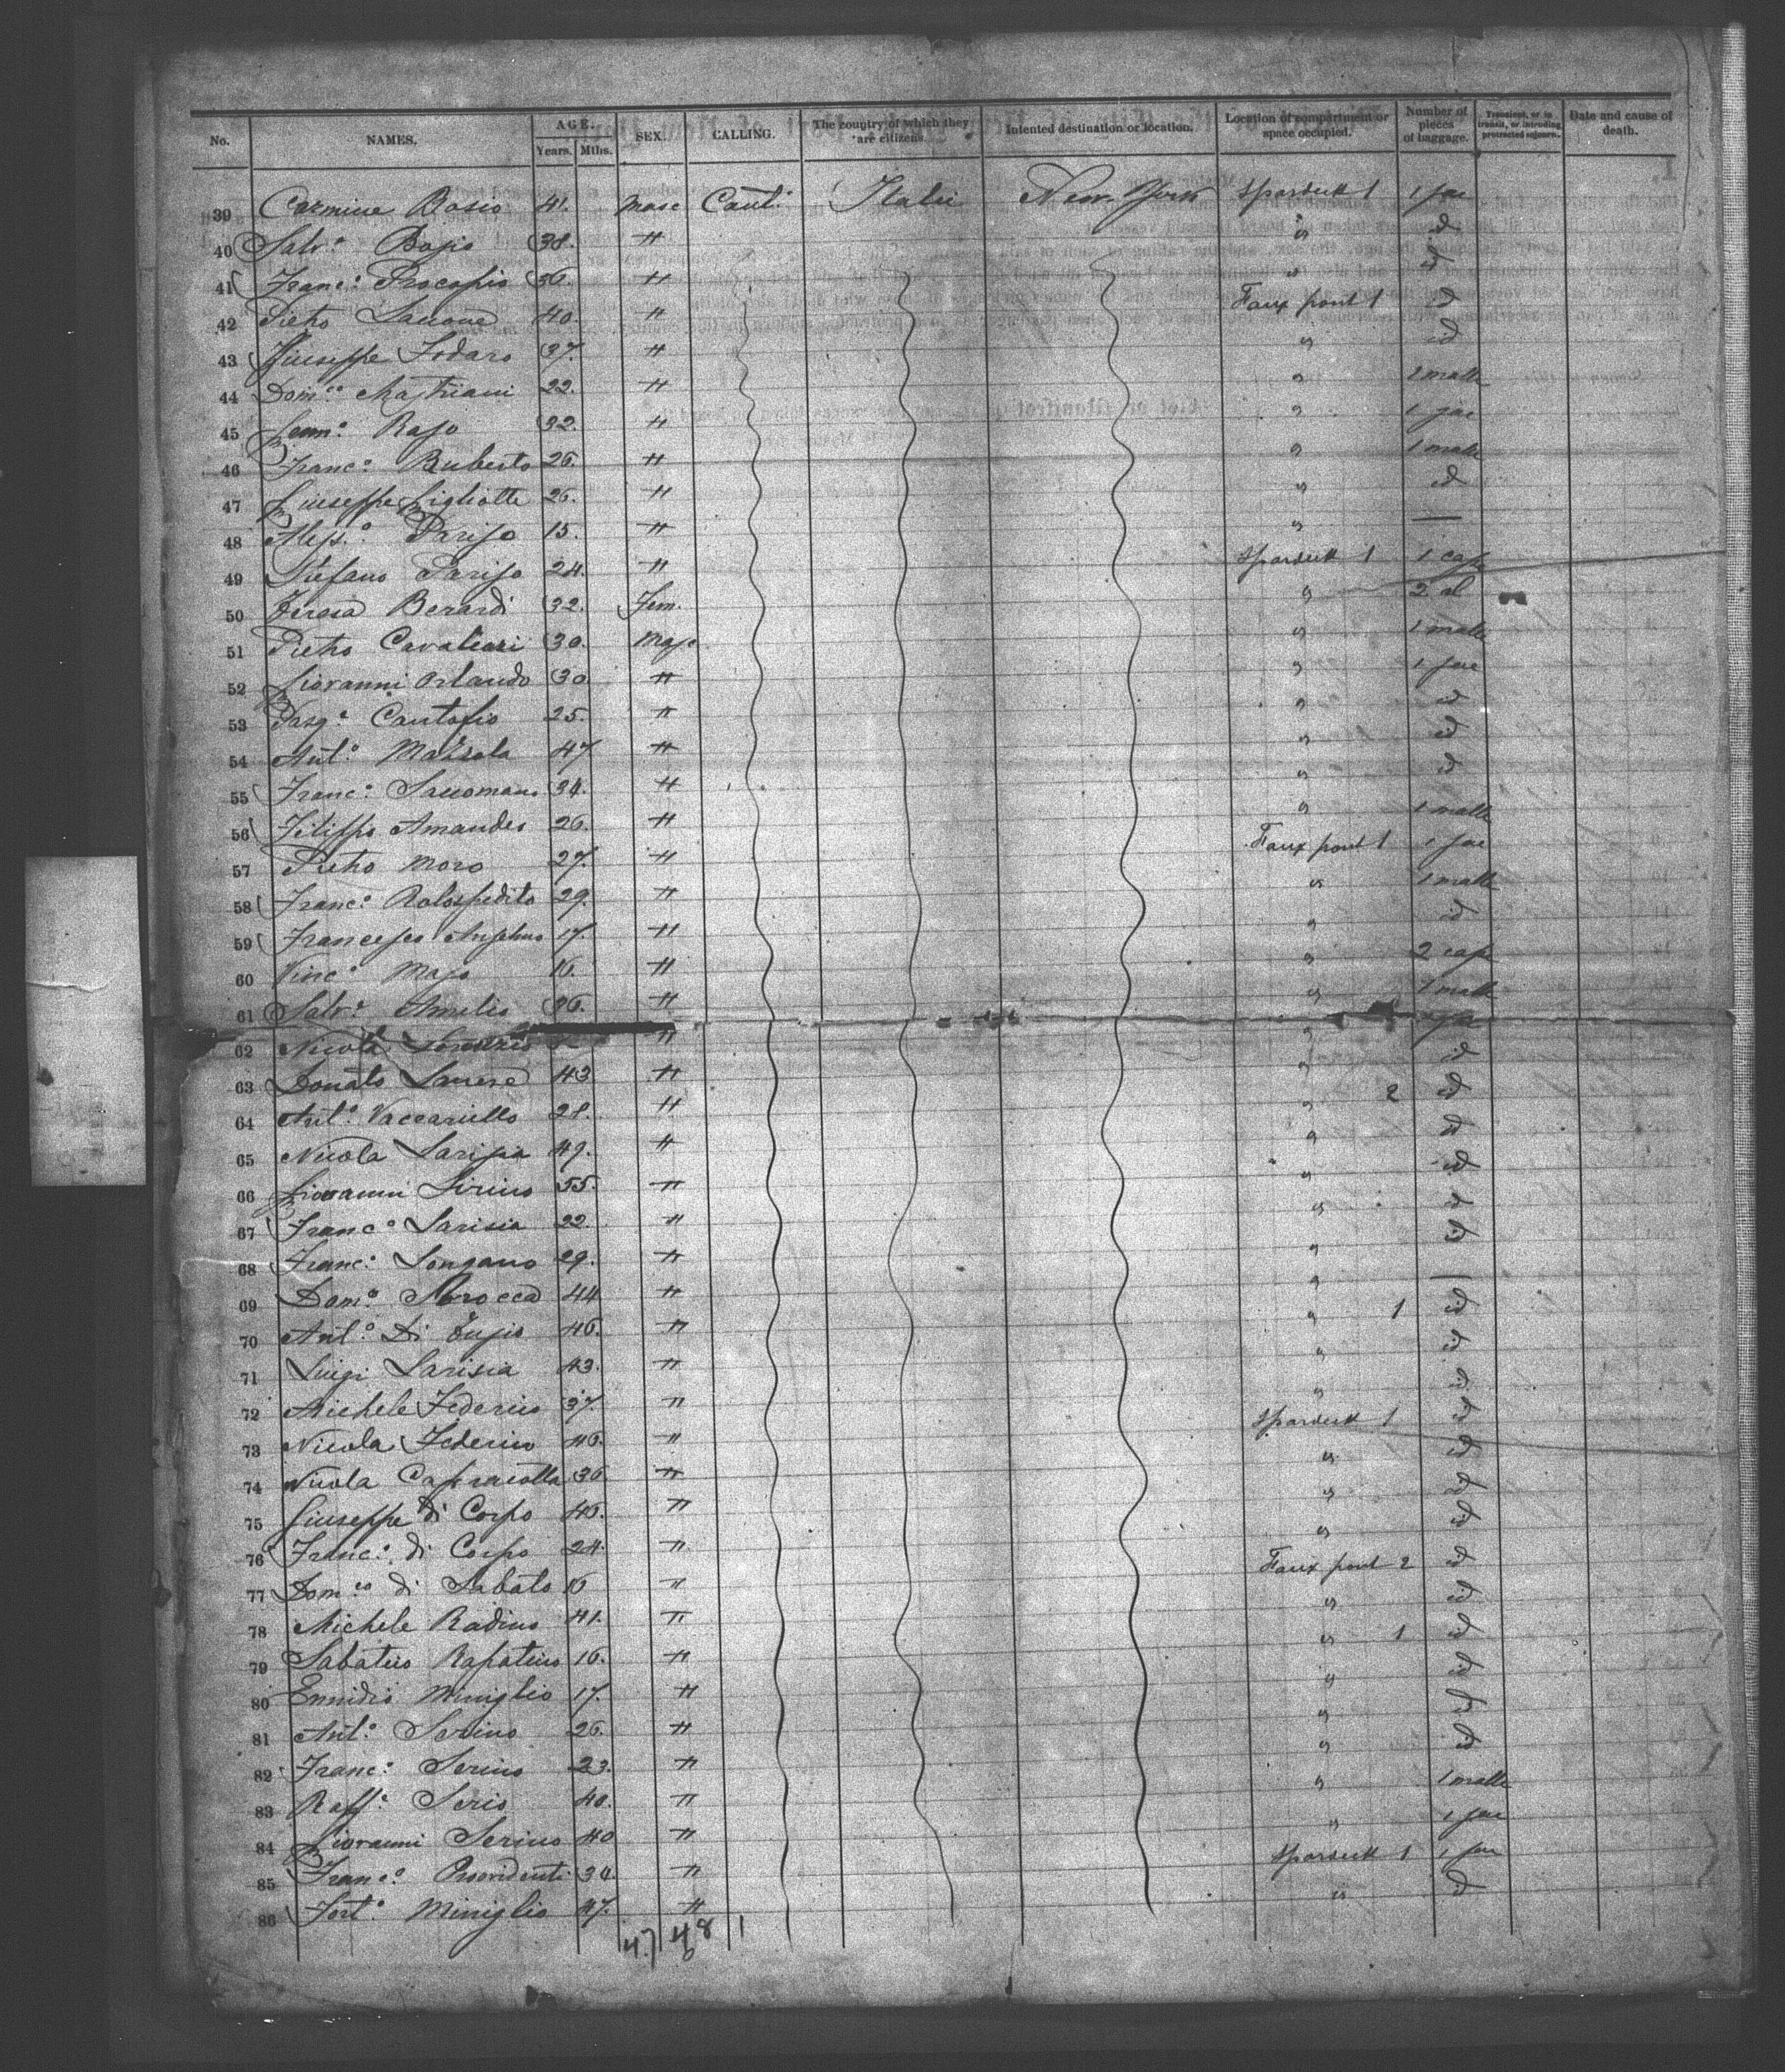 No. NAMES. AGE. Years. Mths. SEX. CALLING. The country of which they are citizens. Intented destination or location. Location of compartment or space occupied. Number of pieces of baggage. Transient, or in transit, or intending protracted sojourn. Date and cause of death.
39 Carmine Bosio 41. Masc Cult. Italie New-York Spardeck 1 1 sac
40 Salv.e Bosio 38. " " id
41 Franc.o Procopio 36. " " id
42 Pietro 40. " Faux pont 1 id
43 Giuseppe Fodaro 37. " " id
44 Dom.co Mastriani 22. " " 1 malle
45 Genn.o Raso 32. " " 1 sac
46 Franc.o Ruberto 26. " " 1 malle
47 Giuseppe Gigliotti 26. " " id
48 Parise 15. " " —
49 Stefano Parise 24. " Spardeck 1 1
50 Teresa Berardi 32. Fem. " 2 id
51 Pietro Cavalieri 30. Masc " 1 malle
52 Giovanni Orlando 30 " " 1 sac
53 Pasq.e Cantafio 25. " " id
54 Ant.o Mazzola 47 " " id
55 Franc.o Saccomano 34. " " id
56 Filippo Amandeo 26. " " 1 malle
57 Pietro Moro 27. " Faux pont 1 1 sac
58 Franc.o 29. " " 1 malle
59 Francesco Anselmo 17. " " id
60 Vinc.o 16. " " 2
61 Salv.e Amelio 36. " " 1 malle
62 Nicola " "
63 Donato 43 " " id
64 Ant.o Vaccariello 28. " " 2 id
65 Nicola Larisia 49. " " id
66 Giovanni Sirino 55. " " id
67 Franc.o Larisia 22. " " id
68 Franc.o Longano 29. " " id
69 Dom.o 44 " " —
70 Ant.o Di 46. " " 1 id
71 Luigi Larisia 43. " " id
72 Michele Federico 37. " " id
73 Nicola Federico 46. " Spardeck 1 id
74 Nicola Capracotta 36 " " id
75 Giuseppe di Corpo 46. " " id
76 Franc.o di Corpo 24. " " id
77 Dom.co di Sabato 16 " Faux pont 2 id
78 Michele Radino 41. " " id
79 Sabatino 16. " " 1 id
80 Ennidio Miniglio 17. " " id
81 Ant.o Serino 26. " " id
82 Franc.o Serino 23. " " id
83 Raff.e Serio 40. " " 1 malle
84 Giovanni Serino 40 " " 1 sac
85 Franc.o Providenti 34. " Spardeck 1 1 sac
86 Fort.o Miniglio 47. " " id
47 48 1